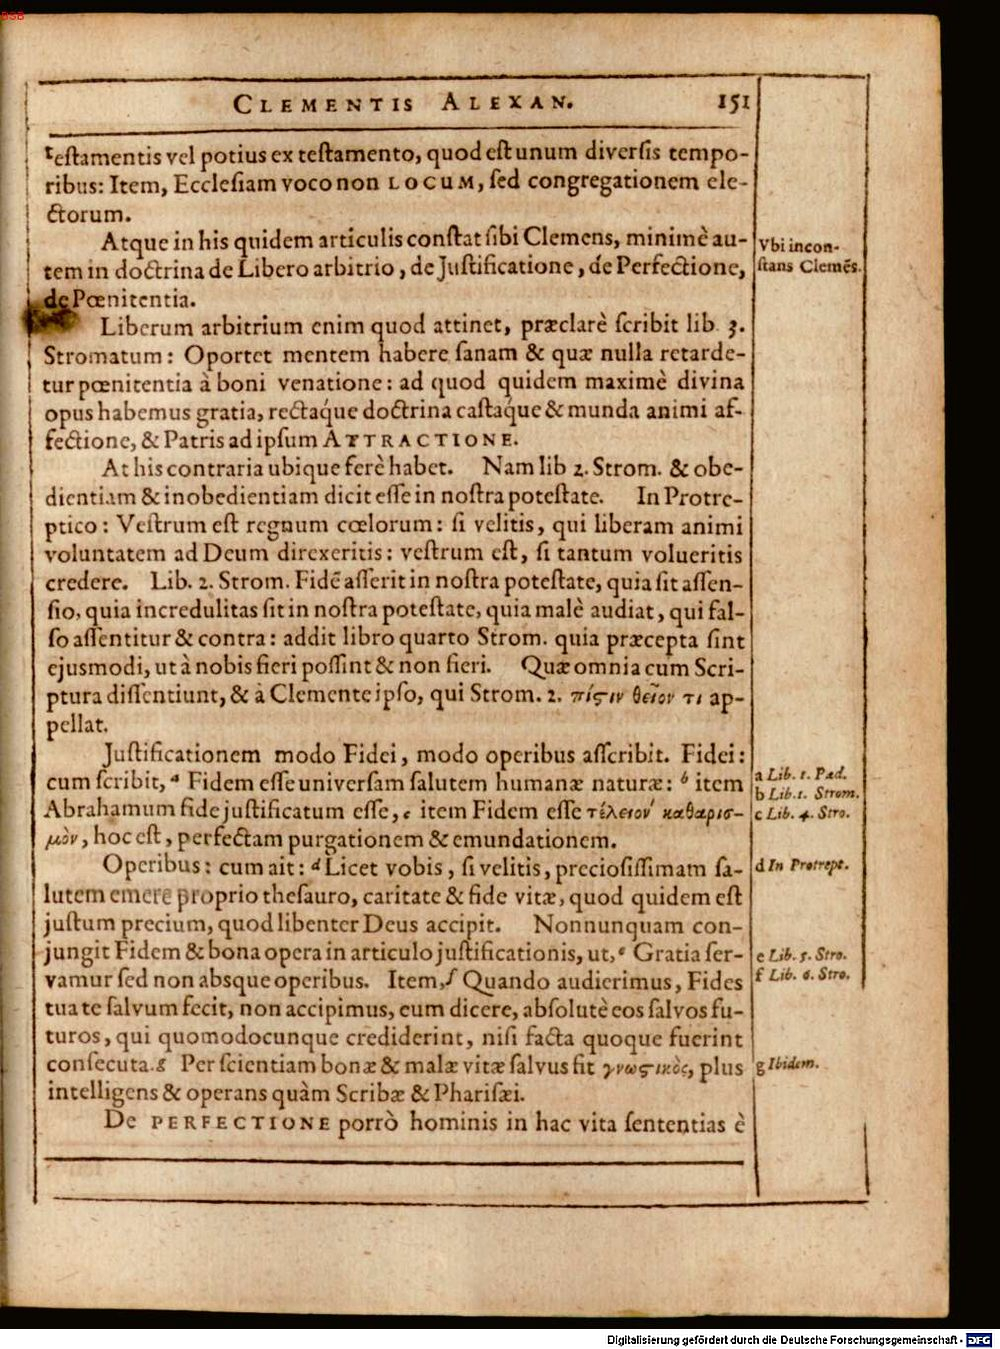 BSB
CLEMENTIS ALEXAN. 151
testamentis vel potius ex testamento, quod est unum diversis tempo-
ribus: Item, Ecclesiam voco non LOCUM, sed congregationem ele-
ctorum.
Atque in his quidem articulis constat sibi Clemens, minimè au-
tem in doctrina de Libero arbitrio, de Justificatione, de Perfectione,
de Pœnitentia.
Vbi incon-
stans Clemẽs.
Liberum arbitrium enim quod attinet, præclarè scribit lib. 3.
Stromatum: Oportet mentem habere sanam & quæ nulla retarde-
tur pœnitentia à boni venatione: ad quod quidem maximè divina
opus habemus gratia, rectaq́ue doctrina castaq́ue & munda animi af-
fectione, & Patris ad ipsum ATTRACTIONE.
At his contraria ubique ferè habet. Nam lib 2. Strom. & obe-
dientiam & inobedientiam dicit esse in nostra potestate. In Protre-
ptico: Vestrum est regnum cœlorum: si velitis, qui liberam animi
voluntatem ad Deum direxeritis: vestrum est, si tantum volueritis
credere. Lib. 2. Strom. Fidẽ asserit in nostra potestate, quia sit assen-
sio, quia incredulitas sit in nostra potestate, quia malè audiat, qui fal-
so assentitur & contra: addit libro quarto Strom. quia præcepta sint
ejusmodi, ut à nobis fieri possint & non fieri. Quæ omnia cum Scri-
ptura dissentiunt, & à Clemente ipso, qui Strom. 2. πίςιν θεῖον τι ap-
pellat.
Justificationem modo Fidei, modo operibus asscribit. Fidei:
cum scribit, a Fidem esse universam salutem humanæ naturæ: b item
Abrahamum fide justificatum esse, c item Fidem esse τέλειον καθαρισ-
μὸν, hoc est, perfectam purgationem & emundationem.
a Lib. 1. Pæd.
b Lib. 1. Strom.
c Lib. 4. Stro.
Operibus: cum ait: d Licet vobis, si velitis, preciosissimam sa-
lutem emere proprio thesauro, caritate & fide vitæ, quod quidem est
justum precium, quod libenter Deus accipit. Nonnunquam con-
jungit Fidem & bona opera in articulo justificationis, ut, e Gratia ser-
vamur sed non absque operibus. Item, f Quando audierimus, Fides
tua te salvum fecit, non accipimus, eum dicere, absolutè eos salvos fu-
turos, qui quomodocunque crediderint, nisi facta quoque fuerint
consecuta. g Per scientiam bonæ & malæ vitæ salvus fit γνωςικὸς, plus
intelligens & operans quàm Scribæ & Pharisæi.
d In Protrept.
e Lib. 5. Stro.
f Lib. 6. Stro.
g Ibidem.
De PERFECTIONE porrò hominis in hac vita sententias è
Digitalisierung gefördert durch die Deutsche Forschungsgemeinschaft - DFG